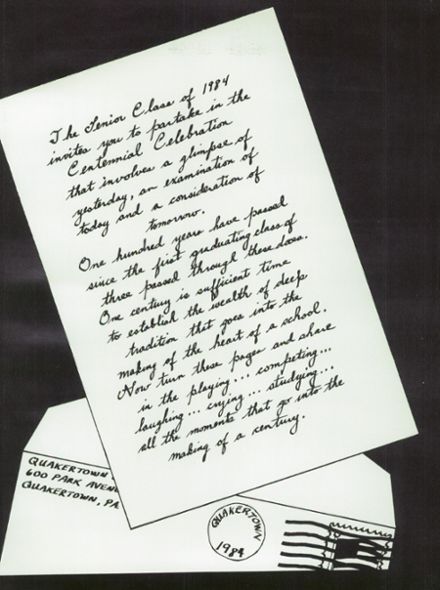 The Senior Class of 1984
invites you to partake in the
Centennial Celebration
that involves a glimpse of
yesterday, an examination of
today and a consideration of
tomorrow.
One hundred years have passed
since the first graduating class of
three passed through these doors.
One century is sufficient time
to establish the wealth of deep
tradition that goes into the
making of the heart of a school.
Now turn these pages and share
in the playing... competing...
laughing... crying... studying...
all the moments that go into the
making of a century.
QUAKERTOWN
600 PARK AVENU
QUAKERTOWN, PA
QUAKERTOWN
1984